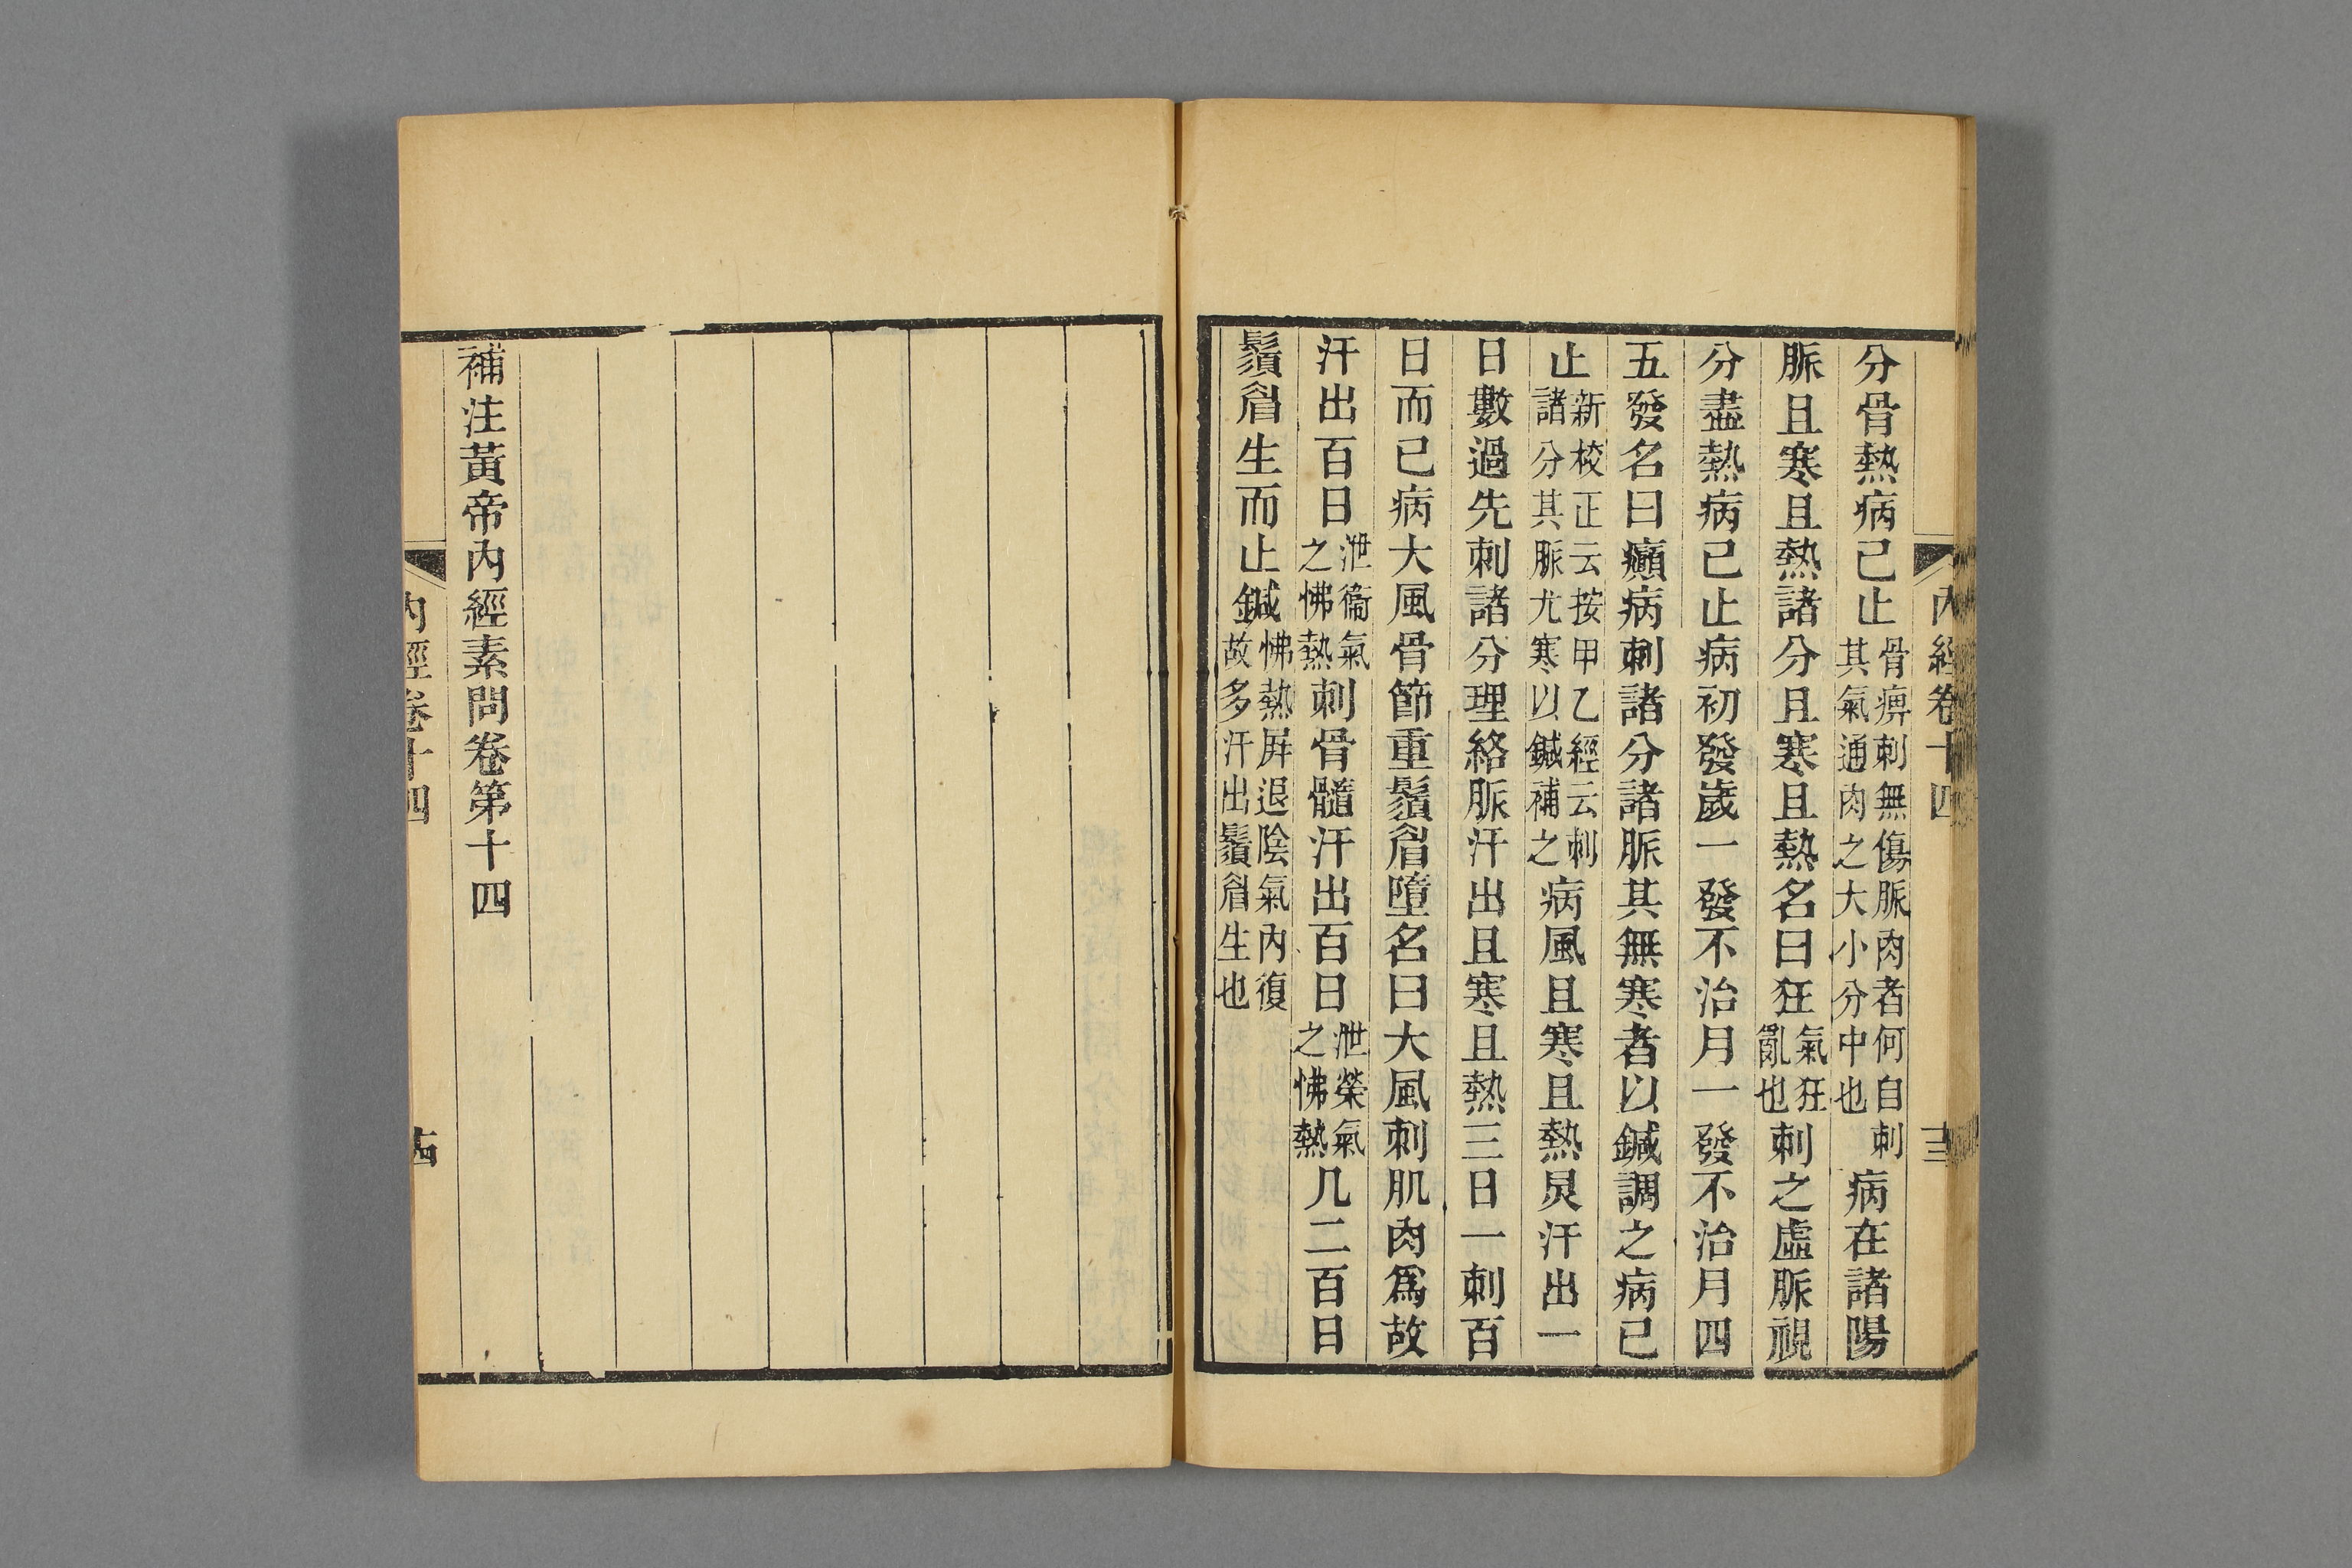 內經卷十四
分骨熱病已止骨痹刺無傷脈肉者何自刺其氣通肉之大小分中也病在諸陽
脈且寒且熱諸分且寒且熱名曰狂氣狂亂也刺之虛脈視
分盡熱病已止病初發歲一發不治月一發不治月四
五發名曰癲病刺諸分諸脈其無寒者以鍼調之病已
止新校正云按甲乙經云刺諸分其脈尤寒以鍼補之病風且寒且熱炅汗出一
日數過先刺諸分理絡脈汗出且寒且熱三日一刺百
日而已病大風骨節重鬚眉墮名曰大風刺肌肉爲故
汗出百日泄衞氣之怫熱刺骨髓汗出百日泄榮氣之怫熱凡二百日
鬚眉生而止鍼怫熱屛退陰氣內復故多汗出鬚眉生也
補注黃帝內經素問卷第十四
內經卷十四